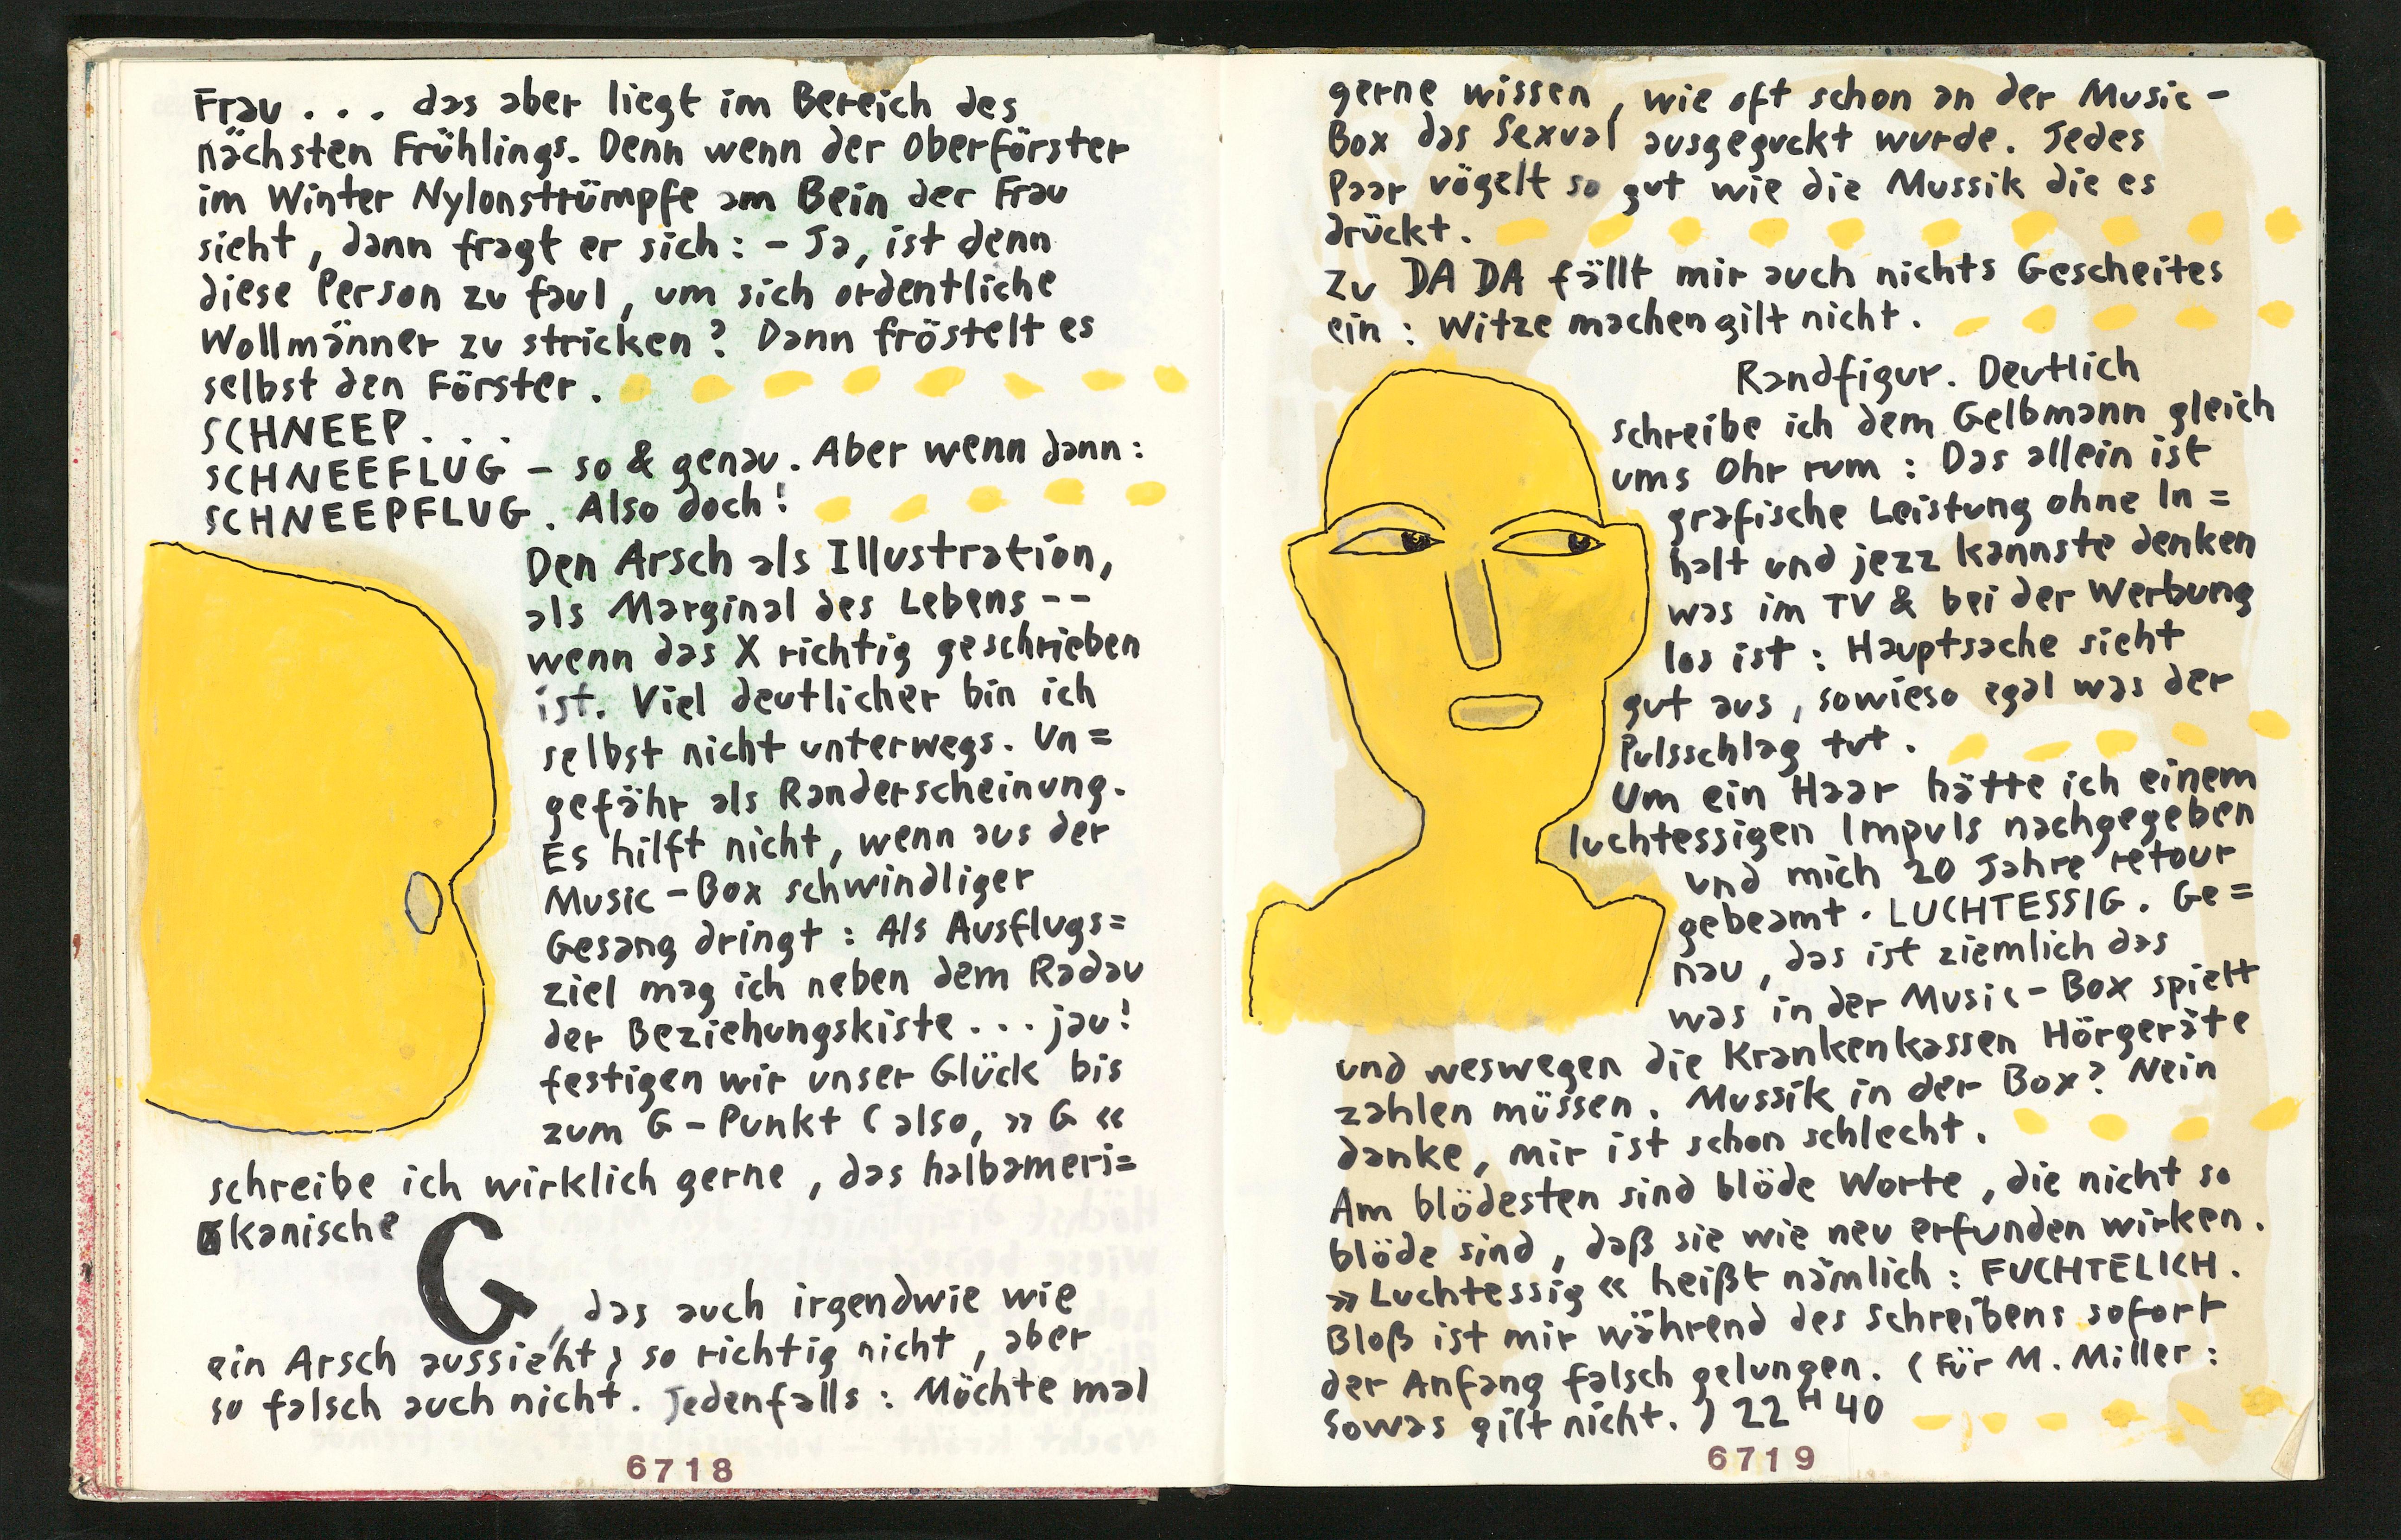 Frau . . . das aber liegt im Bereich des
nächsten Frühlings. Denn wenn der Oberförster
im Winter Nylonstrümpfe am Bein der Frau
sieht, dann fragt er sich: - Ja, ist denn
diese Person zu faul, um sich ordentliche
Wollmänner zu stricken? Dann fröstelt es
selbst den Förster.
SCHNEEP. . .
SCHNEEFLUG - so & genau. Aber wenn dann:
SCHNEEPFLUG. Also doch!
Den Arsch als Illustration,
als Marginal des Lebens --
wenn das X richtig geschrieben
ist. Viel deutlicher bin ich
selbst nicht unterwegs. Un=
gefähr als Randerscheinung.
Es hilft nicht, wenn aus der
Music-Box schwindliger
Gesang dringt: Als Ausflugs=
ziel mag ich neben dem Radau
der Beziehungskiste . . . jau!
festigen wir unser Glück bis
zum G-Punkt (also, »G«
schreibe ich wirklich gerne, das halbameri=
kanische
G, das auch irgendwie wie
ein Arsch aussieht; so richtig nicht, aber
so falsch auch nicht. Jedenfalls: Möchte mal
6718
gerne wissen, wie oft schon an der Music-
Box das Sexual ausgeguckt wurde. Jedes
Paar vögelt so gut wie die Mussik die es
drückt.
Zu DA DA fällt mir auch nichts Gescheites
ein: Witze machen gilt nicht.
Randfigur. Deutlich
schreibe ich dem Gelbmann gleich
ums Ohr rum: Das allein ist
grafische Leistung ohne In=
halt und jezz kannste denken
was im TV & bei der Werbung
los ist: Hauptsache sieht
gut aus, sowieso egal was der
Pulsschlag tut.
Um ein Haar hätte ich einem
luchtessigen Impuls nachgegeben
und mich 20 Jahre retour
gebeamt. LUCHTESSIG. Ge=
nau, das ist ziemlich das
was in der Music-Box spielt
und weswegen die Krankenkassen Hörgeräte
zahlen müssen. Mussik in der Box? Nein
danke, mir ist schon schlecht.
Am blödesten sind blöde Worte, die nicht so
blöde sind, daß sie wie neu erfunden wirken.
»Luchtessig« heißt nämlich: FUCHTELICH.
Bloß ist mir während des Schreibens sofort
der Anfang falsch gelungen. (Für M. Miller:
Sowas gilt nicht.) 22 H 40
6719